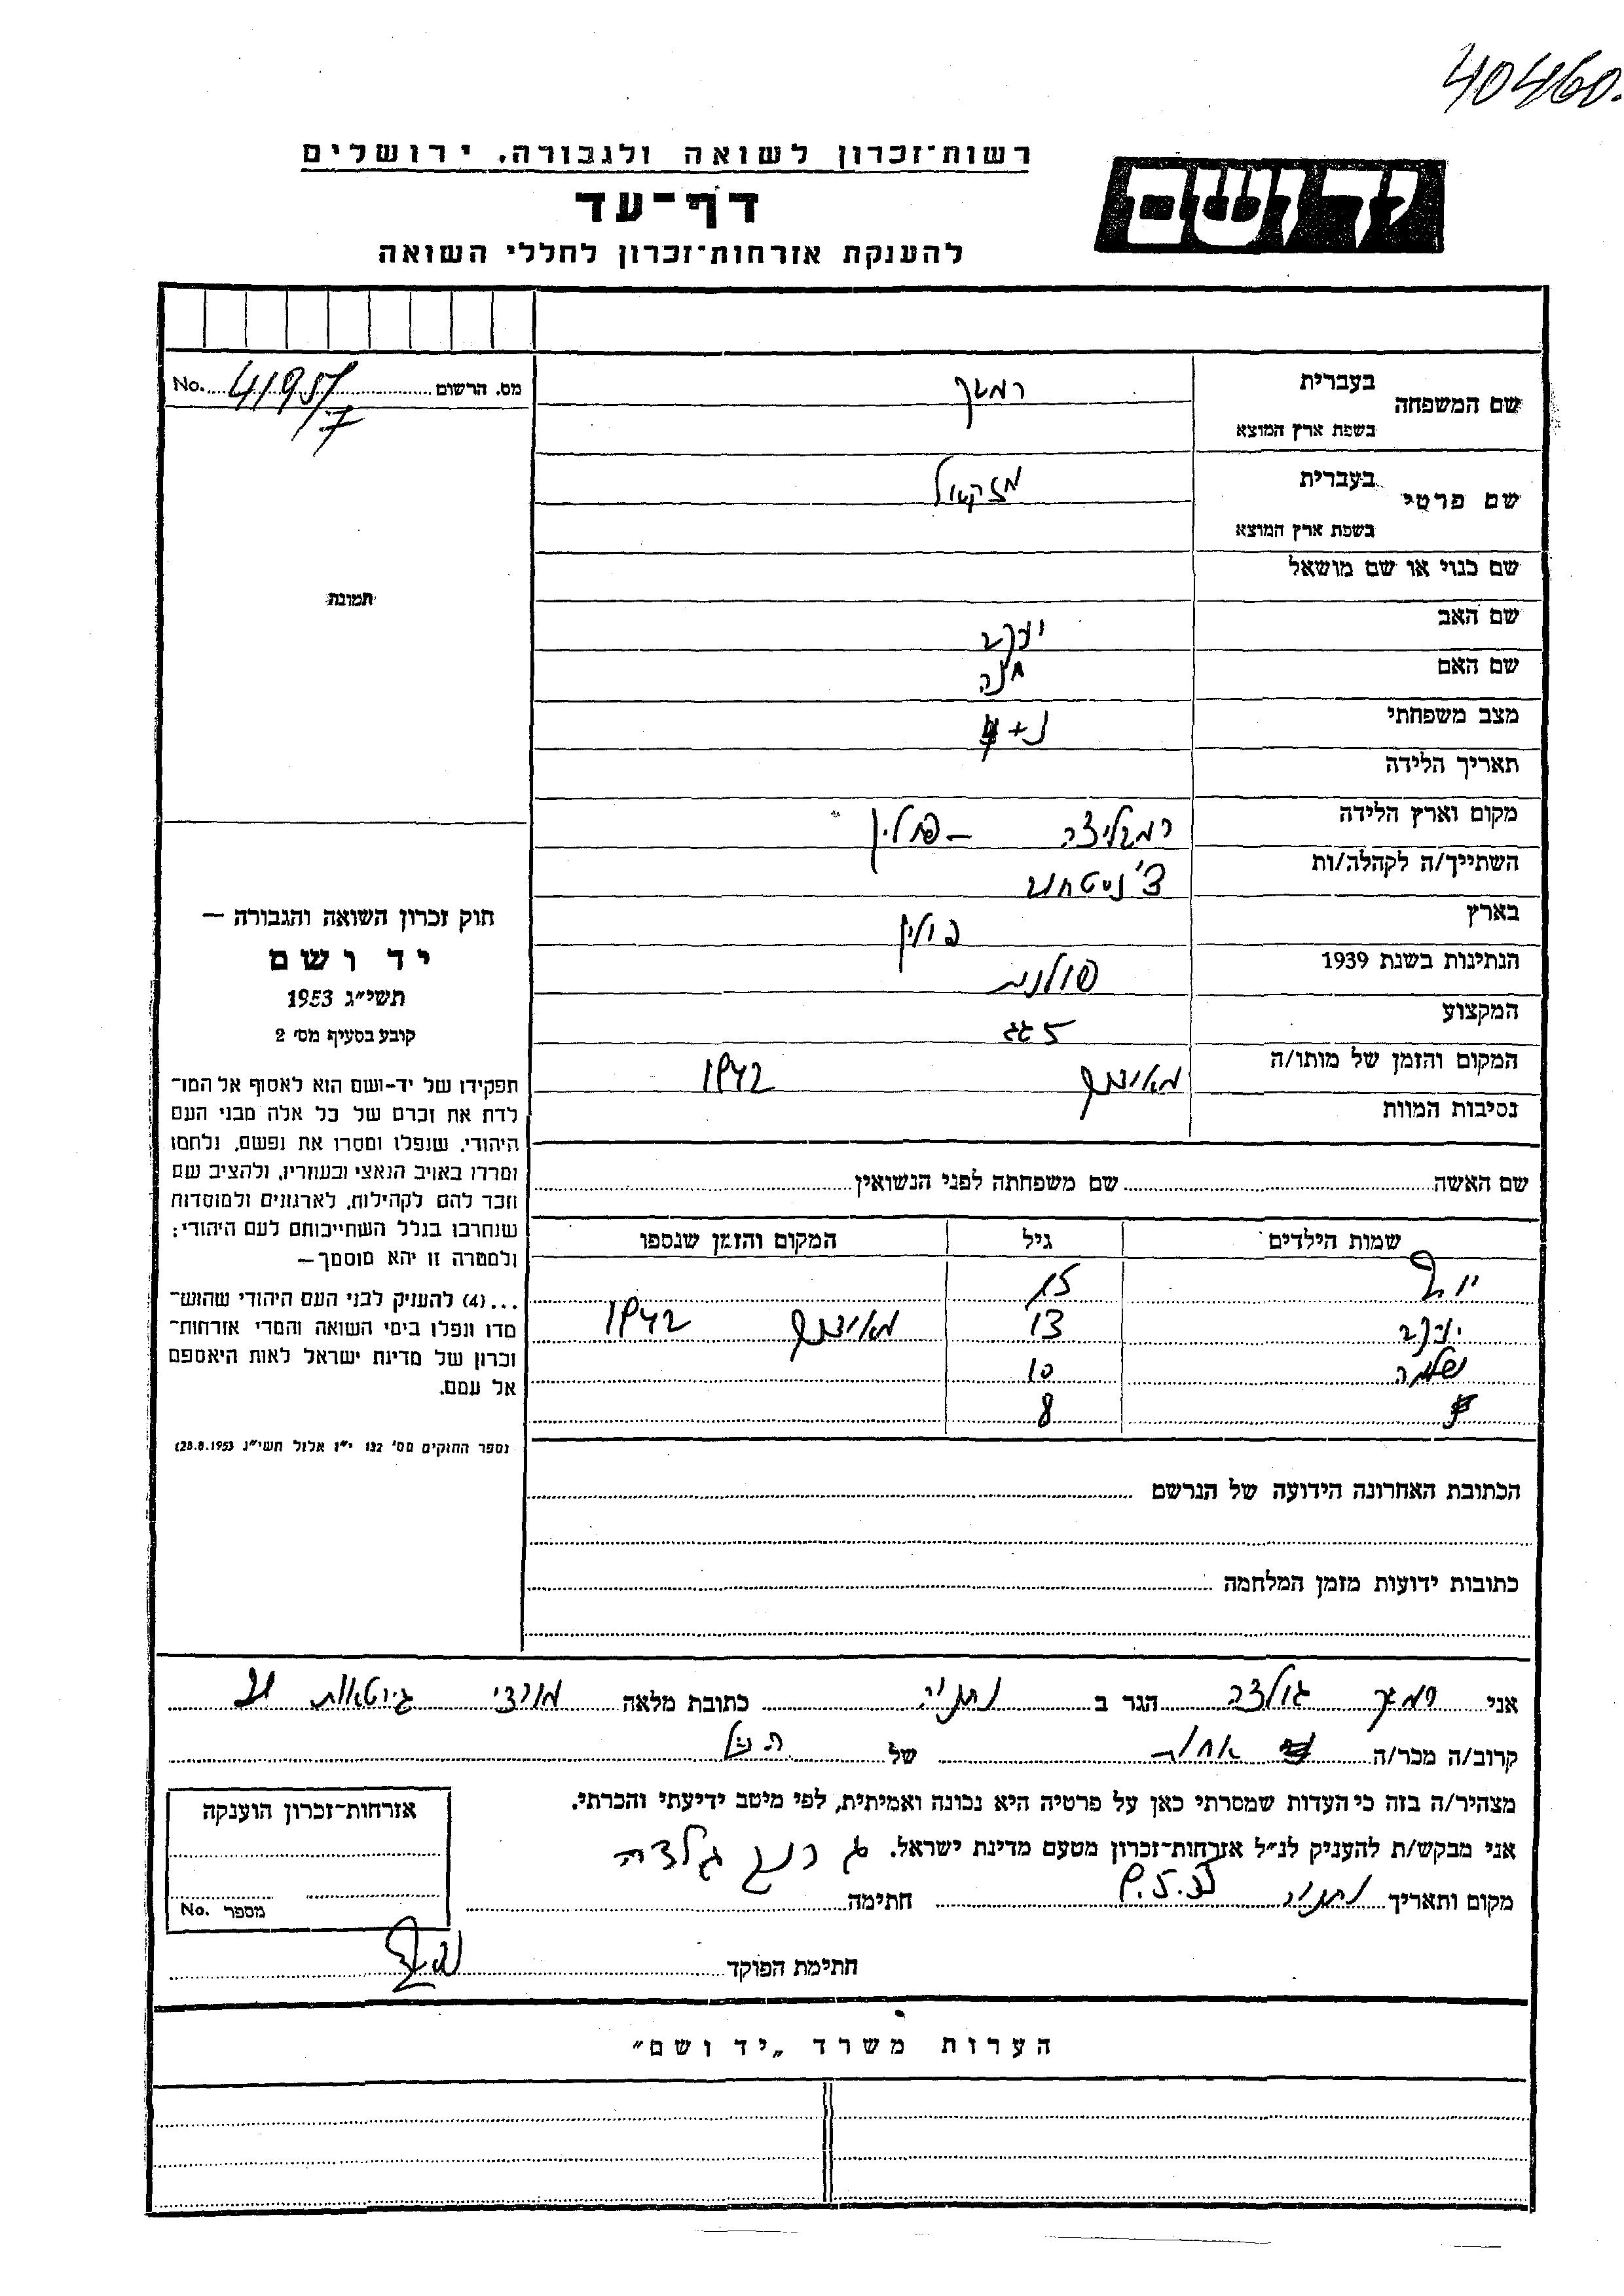 40460.
רשות־זכרון לשואה ולגבורה, ירושלים
יד ושם
דף־עד
להענקת אזרחות־זכרון לחללי השואה
מס. הרשום 41957/7 No.
שם המשפחה בעברית
בשפת ארץ המוצא
שם פרטי בעברית יחזקאל
בשפת ארץ המוצא
שם כנוי או שם מושאל
שם האב יעקב
שם האם חנה
מצב משפחתי נ+4
תאריך הלידה
מקום וארץ הלידה – פולין
השתייך/ה לקהלה/ות צ'נסטחוב
בארץ פולין
הנתינות בשנת 1939 פולנית
המקצוע
המקום והזמן של מותו/ה 1942
נסיבות המוות
תמונה
חוק זכרון השואה והגבורה —
יד ושם
תשי״ג 1953
קובע בסעיף מס׳ 2
תפקידו של יד-ושם הוא לאסוף אל המו־
לדת את זכרם של כל אלה מבני העם
היהודי, שנפלו ומסרו את נפשם, נלחמו
ומרדו באויב הנאצי ובעוזריו, ולהציב שם
וזכר להם לקהילות, לארגונים ולמוסדות
שנחרבו בגלל השתייכותם לעם היהודי;
ולמטרה זו יהא מוסמך—
...(4) להעניק לבני העם היהודי שהוש־
מדו ונפלו בימי השואה והמרי אזרחות־
זכרון של מדינת ישראל לאות היאספם
אל עמם.
(ספר החוקים מס׳ 132 י״ז אלול תשי״ג 28.8.1953)
שם האשה שם משפחתה לפני הנשואין
שמות הילדים גיל המקום והזמן שנספו
15
יעקב 13 1942
שלמה 10
8
הכתובת האחרונה הידועה של הנרשם
כתובות ידועות מזמן המלחמה
אני גולדה הגר ב נתניה כתובת מלאה
קרוב/ה מכר/ה של
מצהיר/ה בזה כי העדות שמסרתי כאן על פרטיה היא נכונה ואמיתית, לפי מיטב ידיעתי והכרתי.
אני מבקש/ת להעניק לנ״ל אזרחות־זכרון מטעם מדינת ישראל.
מקום ותאריך נתניה חתימה גולדה
אזרחות־זכרון הוענקה
מספר No.
חתימת הפוקד
הערות משרד „יד ושם״